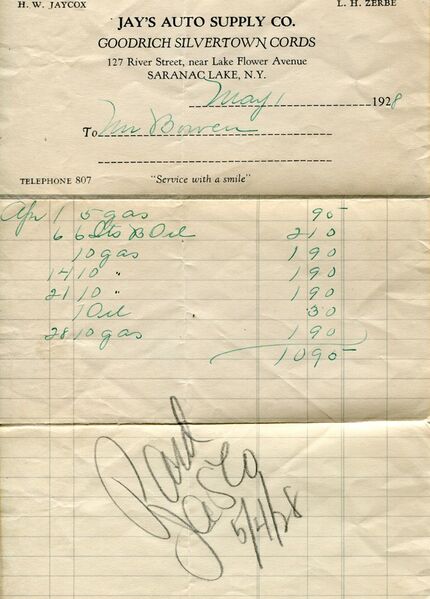 H. W. JAYCOX L. H. ZERBE
JAY'S AUTO SUPPLY CO.
GOODRICH SILVERTOWN CORDS
127 River Street, near Lake Flower Avenue
SARANAC LAKE, N.Y.
May 1 1928
To Mr Bowen
TELEPHONE 807 "Service with a smile"
Apr 1 5 gas 95
6 6 Qts B Oil 210
10 gas 190
14 10 " 190
21 10 " 190
1 Oil 30
28 10 gas 190
1095
Paid
5/4/28